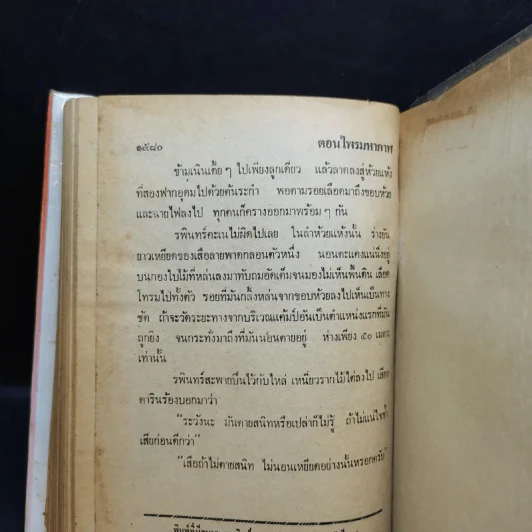 ๑๕๘๐ ตอนไพรมหากาฬ
ข้ามเนินเตี้ย ๆ ไปเพียงลูกเดียว แล้วลาดลงสู่ห้วยแห้ง
ที่สองฟากอุดมไปด้วยต้นระกำ พอตามรอยเลือดมาถึงขอบห้วย
และฉายไฟลงไป ทุกคนก็ครางออกมาพร้อม ๆ กัน
รพินทร์คะเนไม่ผิดไปเลย ในลำห้วยแห้งนั้น ร่างอัน
ยาวเหยียดของเสือลายพาดกลอนตัวหนึ่ง นอนตะแคงแน่นิ่งอยู่
บนกองใบไม้ที่หล่นลงมาทับถมอัดเต็มจนมองไม่เห็นพื้นดิน เลือด
โทรมไปทั้งตัว รอยที่มันกลิ้งหล่นจากขอบห้วยลงไปเห็นเป็นทาง
ชัด ถ้าจะวัดระยะทางจากบริเวณแค้มป์อันเป็นตำแหน่งแรกที่มัน
ถูกยิง จนกระทั่งมาถึงที่มันนอนตายอยู่ ห่างเพียง ๕๐ เมตร
เท่านั้น
รพินทร์สะพายปืนไว้กับไหล่ เหนี่ยวรากไม้ไต่ลงไป เสียง
ดารินร้องบอกมาว่า
“ระวังนะ มันตายสนิทหรือเปล่าก็ไม่รู้ ถ้าไม่แน่ใจซ้ำ
เสียก่อนดีกว่า”
“เสือถ้าไม่ตายสนิท ไม่นอนเหยียดอย่างนั้นหรอกครับ”